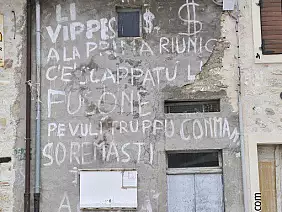 LI
VIPPIS $ $
A LA PRIMA RIUNIO
C'È SCAPPATU LI
FUSONE
PE VULI TRUPPU COMMA
SO REMASTI
A
.com